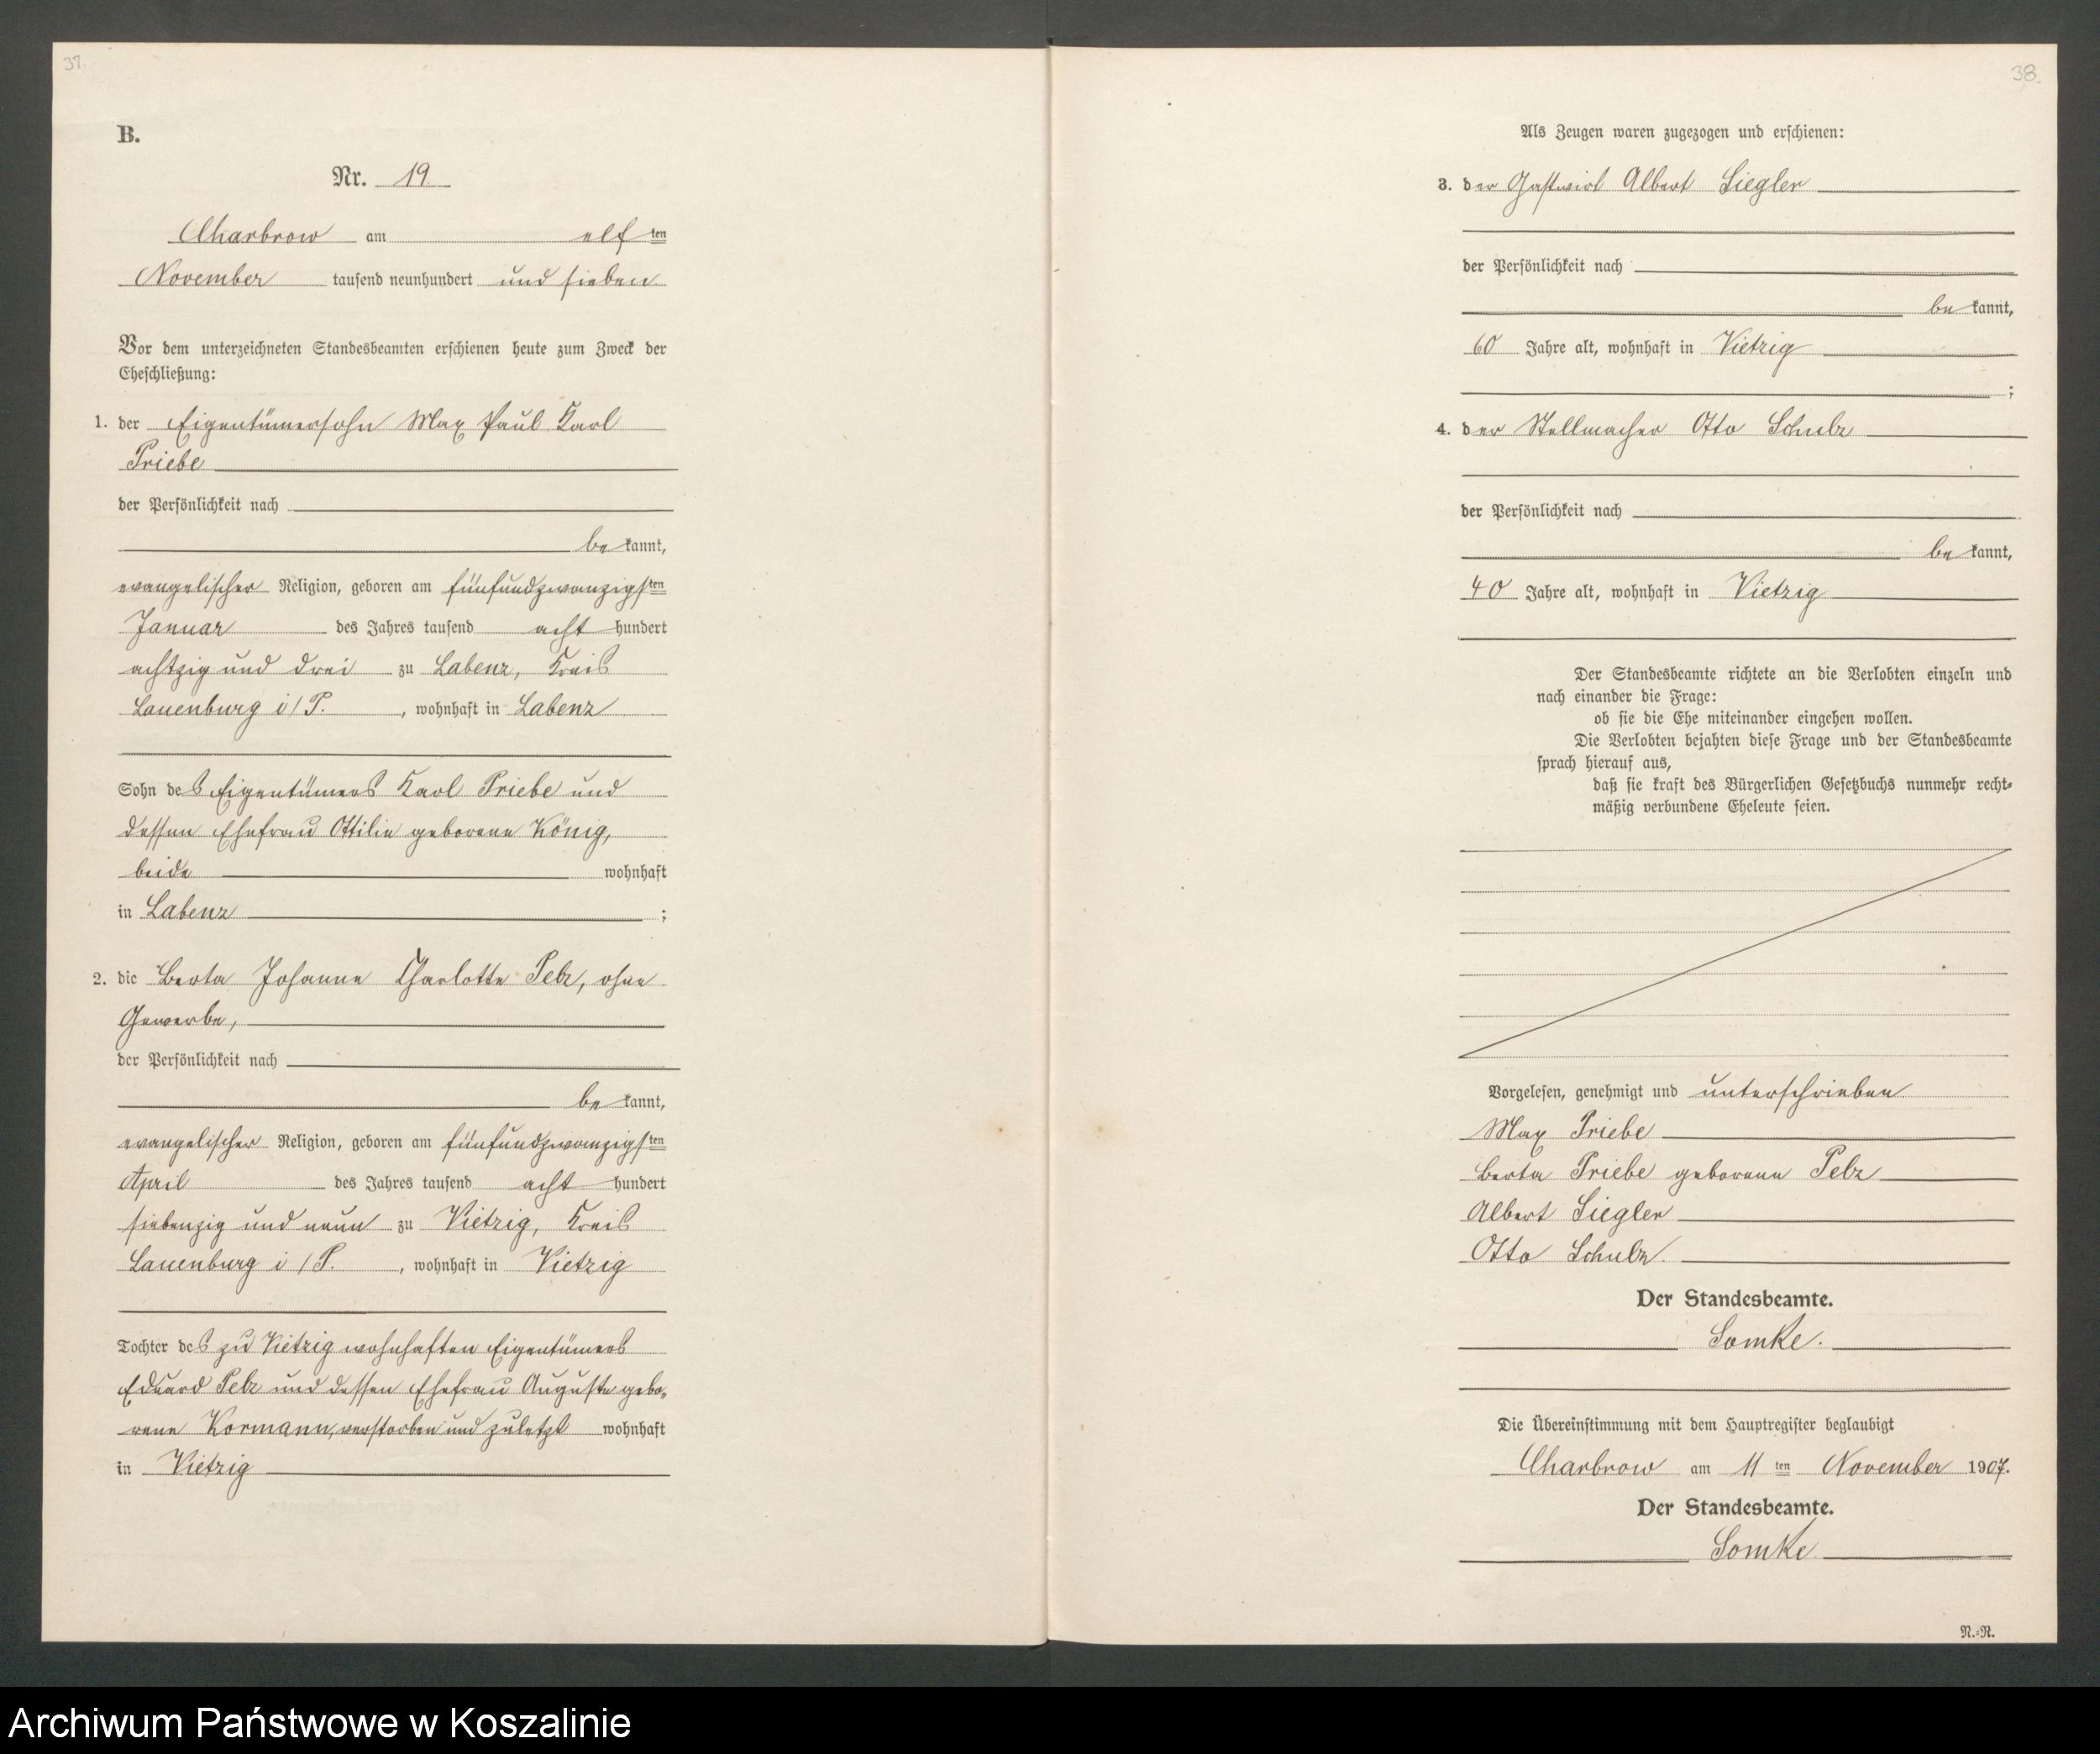 37.
B.
Nr. 19.
Charbrow am elf ten
November tausend neunhundert und sieben
Vor dem unterzeichneten Standesbeamten erschienen heute zum Zweck der
Eheschließung:
1. der Eigentümersohn Max Paul Karl
Priebe
der Persönlichkeit nach
be kannt,
evangelischer Religion, geboren am fünfundzwanzigsten
Januar des Jahres tausend acht hundert
achtzig und drei zu Labenz, Kreis
Lauenburg i/P. , wohnhaft in Labenz
Sohn des Eigentümers Karl Priebe und
dessen Ehefrau Ottilie geborene König,
beide wohnhaft
in Labenz ;
2. die Berta Johanne Charlotte Pelz, ohne
Gewerbe,
der Persönlichkeit nach
be kannt,
evangelischer Religion, geboren am fünfundzwanzigsten
April des Jahres tausend acht hundert
siebenzig und neun zu Vietzig, Kreis
Lauenburg i/P. , wohnhaft in Vietzig
Tochter des zu Vietzig wohnhaften Eigentümers
Eduard Pelz und dessen Ehefrau Auguste gebo-
rene Kormann, verstorben und zuletzt wohnhaft
in Vietzig
38.
Als Zeugen waren zugezogen und erschienen:
3. der Gastwirt Albert Siegler
der Persönlichkeit nach
be kannt,
60 Jahre alt, wohnhaft in Vietzig
;
4. der Stellmacher Otto Schulz
der Persönlichkeit nach
be kannt,
40 Jahre alt, wohnhaft in Vietzig
Der Standesbeamte richtete an die Verlobten einzeln und
nach einander die Frage:
ob sie die Ehe miteinander eingehen wollen.
Die Verlobten bejahten diese Frage und der Standesbeamte
sprach hierauf aus,
daß sie kraft des Bürgerlichen Gesetzbuchs nunmehr recht-
mäßig verbundene Eheleute seien.
Vorgelesen, genehmigt und unterschrieben
Max Priebe
Berta Priebe geborene Pelz
Albert Siegler
Otto Schulz.
Der Standesbeamte.
Somke.
Die Übereinstimmung mit dem Hauptregister beglaubigt
Charbrow am 11 ten November 1907.
Der Standesbeamte.
Somke
N.-R.
Archiwum Państwowe w Koszalinie